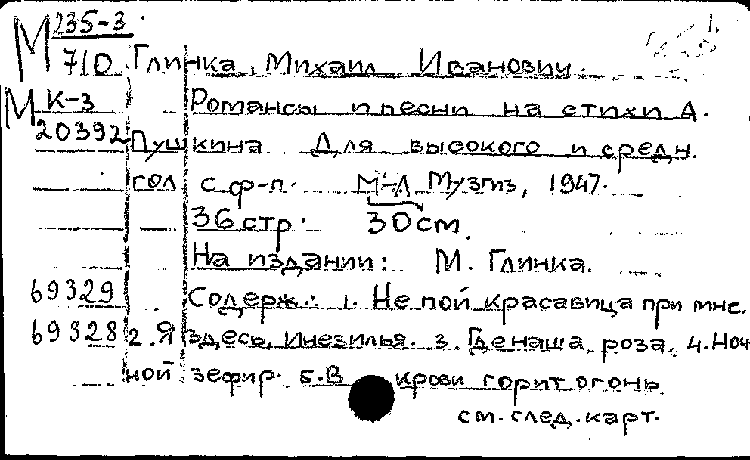 М 235-3
710 Глинка, Михаил Иванович.
М К-3 Романсы и песни на стихи А.
20392 Пушкина Для высокого и средн.
гол. с ф-п. М-Л Музгиз, 1947.
36 стр. 30 см.
На издании: М. Глинка.
69329 Содерж.: 1. Не пой красавица при мне.
69328 2. Я здесь, Инезилья. 3. Где наша роза. 4. Ноч
ной зефир. 5. В крови горит огонь
см. след. карт.